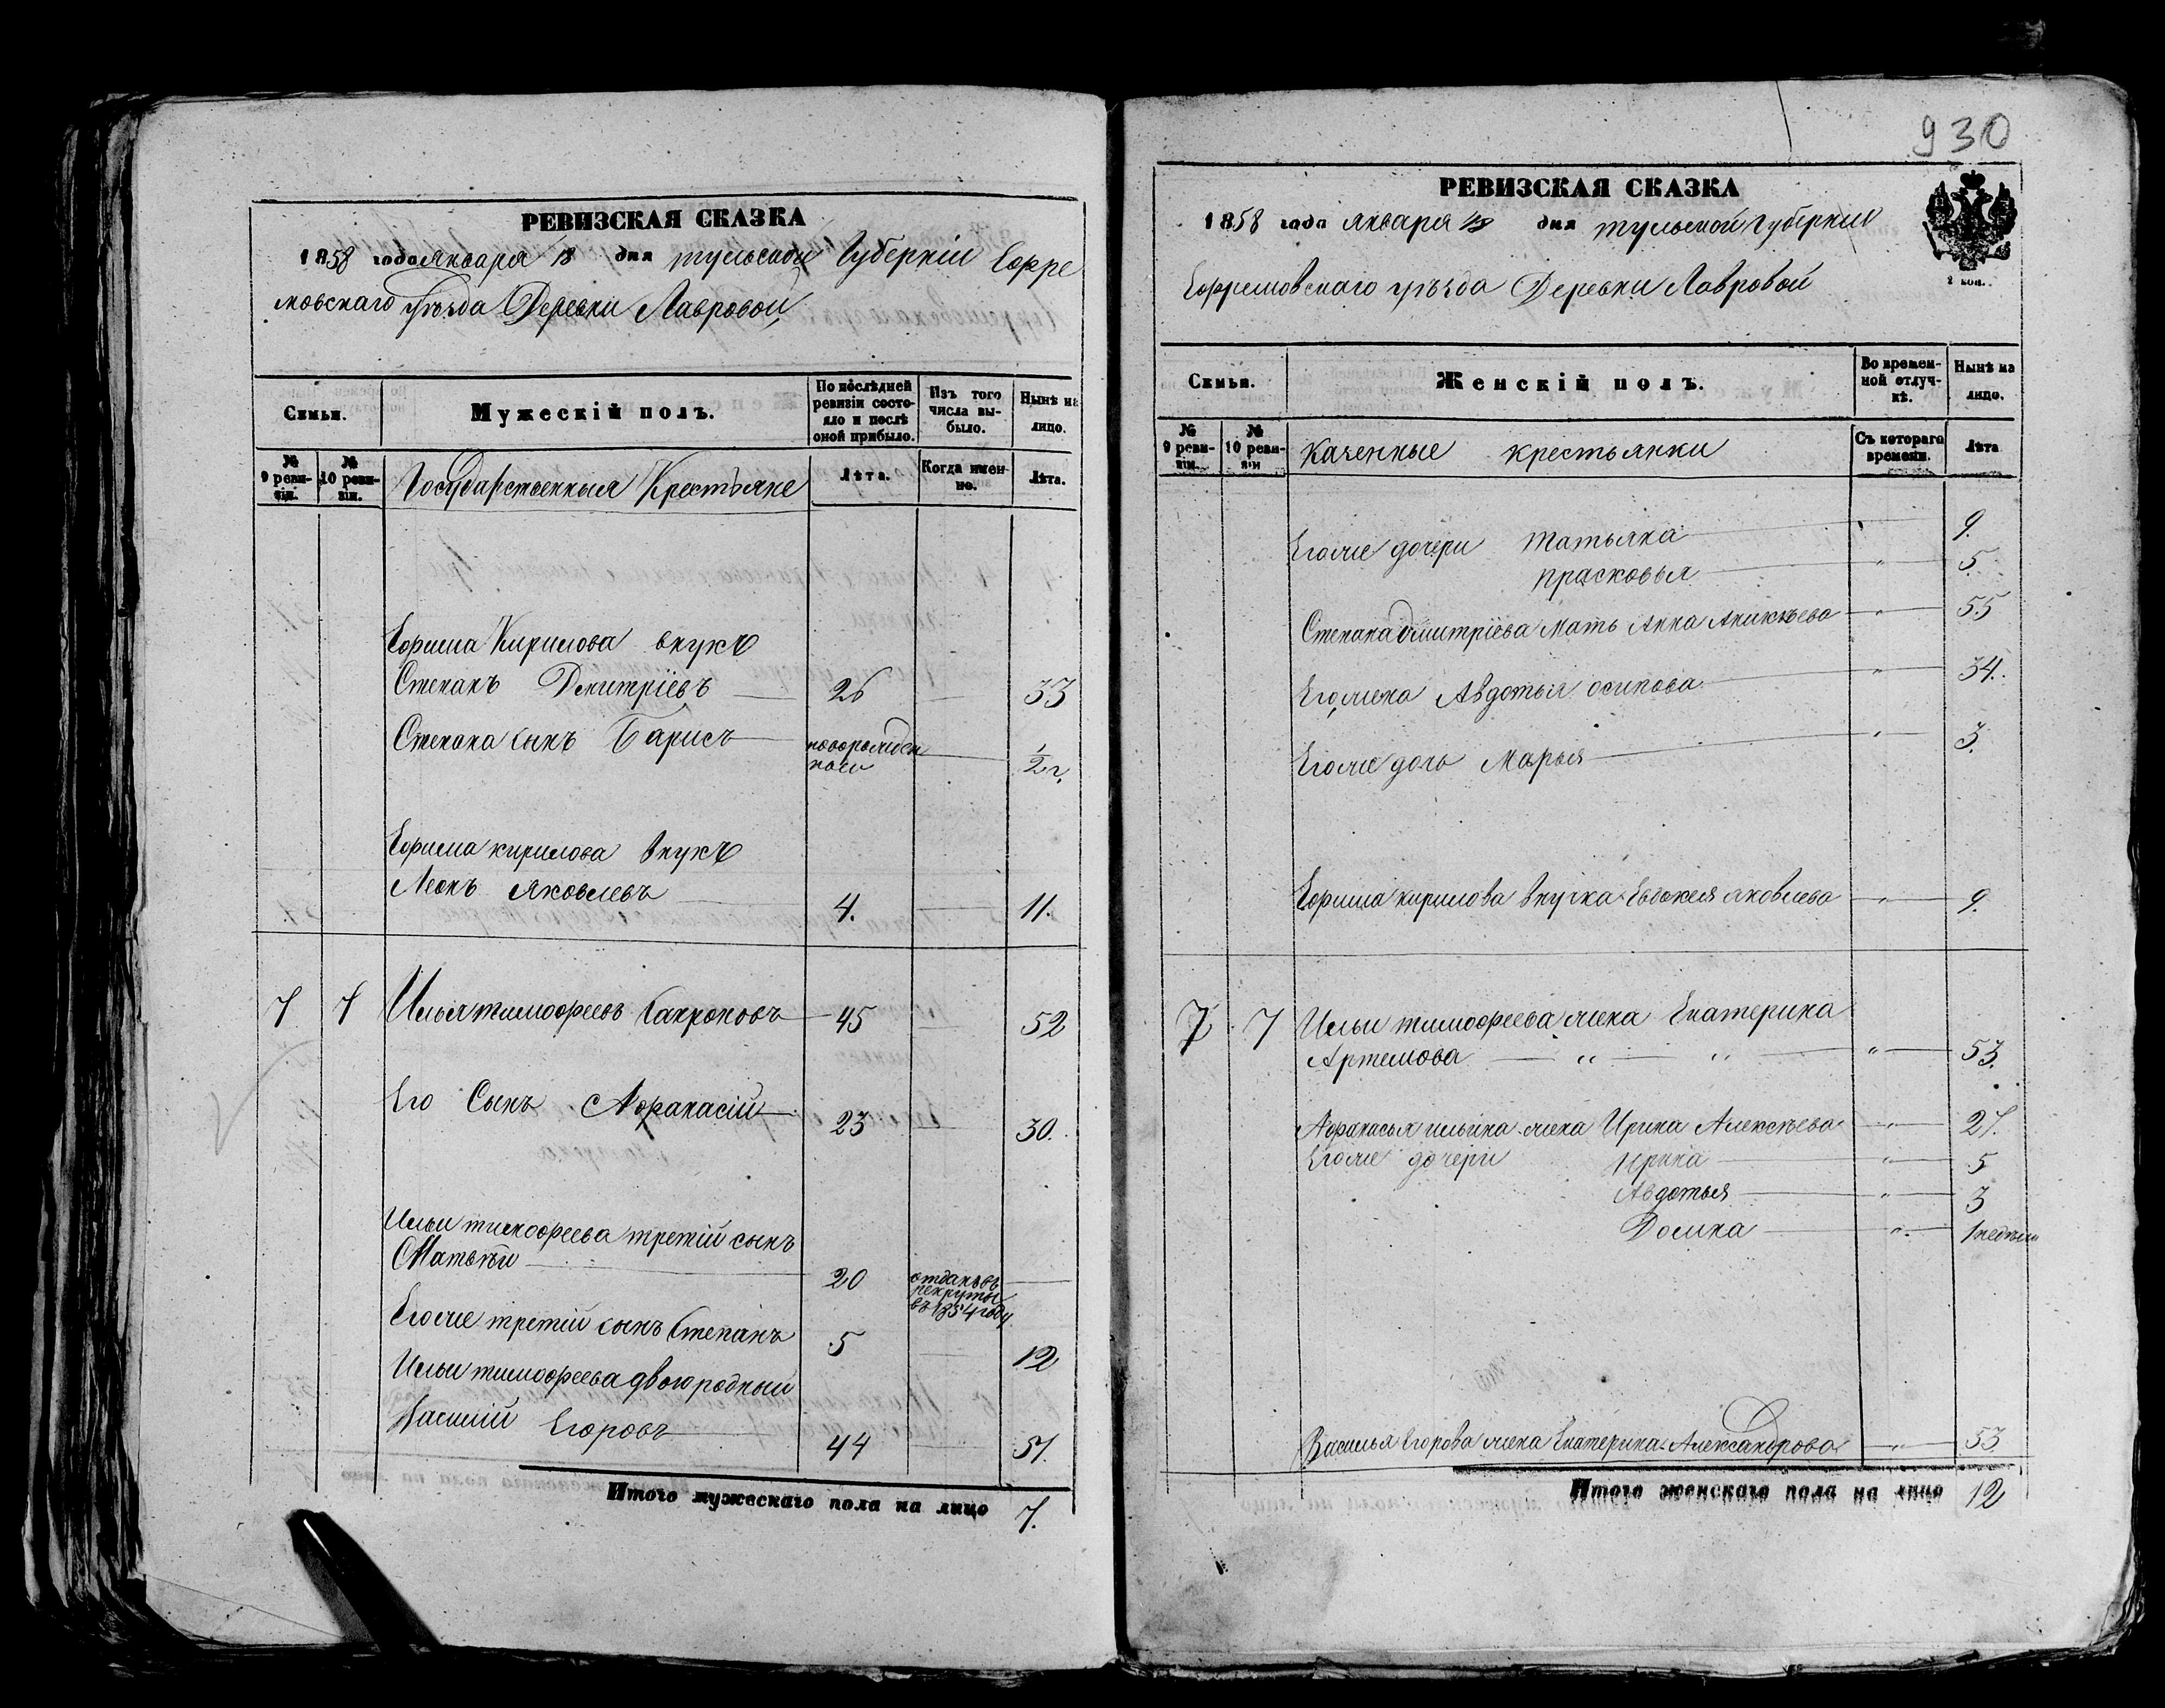 930
РЕВИЗСКАЯ СКАЗКА
1858 года Января 18 дня Тульской Губерніи Ефре
мовскаго уѣзда Деревни Лавровой
Семьи.
Мужескій полъ.
По послѣдней ревизіи состояло и послѣ оной прибыло.
Изъ того числа выбыло.
Нынѣ на лицо.
№ 9 ревизіи.
№ 10 ревизіи.
Государственныя Крестьяне
Лѣта.
Когда именно.
Лѣта.
Ефима Кирилова внукъ
Степанъ Дмитріевъ 26 33
Степана сынъ Барисъ новорожден 1/2 г.
Ефима кирилова внукъ
Леонъ Яковлевъ 4. 11.
7 7 Илья тимофеевъ Сапроновъ 45 52
Его Сынъ Афанасій 23 30.
Ильи тимофеева третій сынъ
Матвѣй 20 отданъ въ
рекруты
въ 1854 году
Егоже третій сынъ Степанъ 5 12
Ильи тимофеева двоюродный
Василій Егоровъ 44 51.
Итого мужескаго пола на лицо 7.
РЕВИЗСКАЯ СКАЗКА
1858 года Января 18 дня тульской Губерніи
Ефремовскаго уѣзда Деревни Лавровой
2 коп.
Семьи.
Женскій полъ.
Во временной отлучкѣ.
Нынѣ на лицо.
№ 9 ревизіи.
№ 10 ревизіи
крестьянки
Съ котораго времени.
Лѣта
Егоже дочери Татьяна " 9.
Прасковья " 5.
Степана дмитріева мать Анна Аникѣева " 55
Его жена Авдотья осипова " 34.
Егоже дочь Марья " 3.
Ефима кирилова внучка Евдокея яковлева " 9.
7 7 Ильи тимофеева жена Екатерина
Артемова " " " 53.
Афанасья ильина жена Ирина Алексѣева " 27.
Егоже дочери Ирина " 5
Авдотья " 3
Домна " 1 недѣли
Василья Егорова жена Екатерина Александрова " 53
Итого женскаго пола на лицо 12